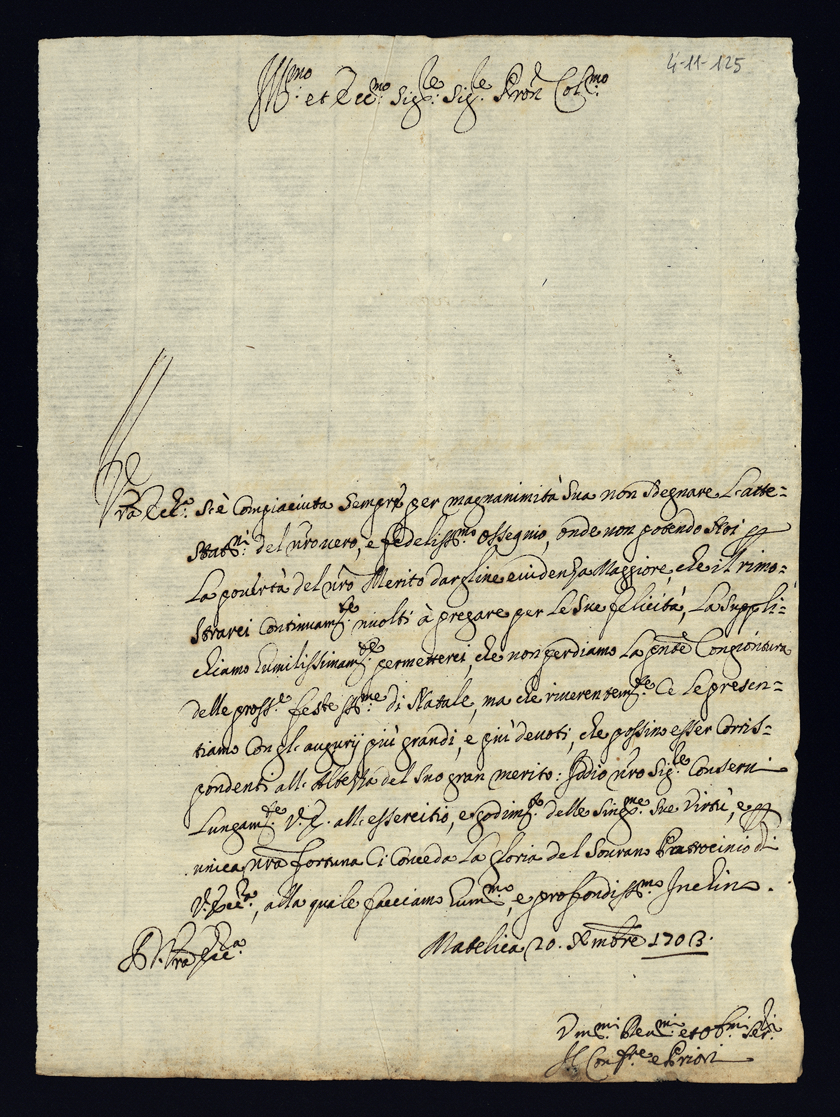 4-11-125
Ill.mo et Ecc.mo Sig.re Sig.re Pron Col.mo
V.ra Ecc.a s'è Compiaciuta Sempre per magnanimità Sua non Sdegnare L'atte=
stat.ni del nro vero, e fedeliss.mo ossequio, onde non potendo
La povertà del nro Merito dargline evidenza Maggiore, che il rimo=
strarci Continuam.te rivolti à pregare per Le Sue felicità, La Suppli=
chiamo humilissimam.te permetterci, che non perdiamo La pnte Congiontura
delle pross.e feste SS.me di Natale, ma che riverentem.te Ce Le presen=
tiamo Con gl'augurij più grandi, e più devoti, che possino esser Corris=
pondenti all'Altezza del Suo gran merito: Iddio nro Sig.re Conservi
Lungam.te V.E. all'essercitio, e godim.to delle Sing.me Sue Virtù, e p
unica nra fortuna Ci Conceda La gloria del Sourano Patrocinio di
V. Ecc.a, alla quale facciamo hum.mo, e profondiss.mo Inchino.
D. V.ra Ecc.a
Matelica 20. Xmbre 1703.
Dev.mi et Obl.mi Ser.ri
Il Conf.re e Priori